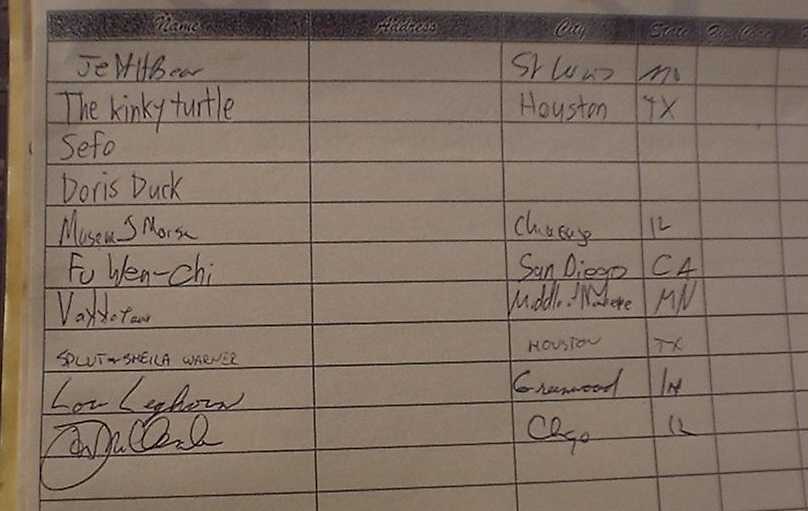 Name Address City State Zip Code
JeHHBear St Louis mo
The kinky turtle Houston TX
Sefo
Doris Duck
Museum of Morse Chicago IL
Fu Wen-Chi San Diego CA
Middle of Nowhere MN
SPLUT & SHEILA WARNER HOUSTON TX
Lou Leghorn Greenwood IN
Chgo IL